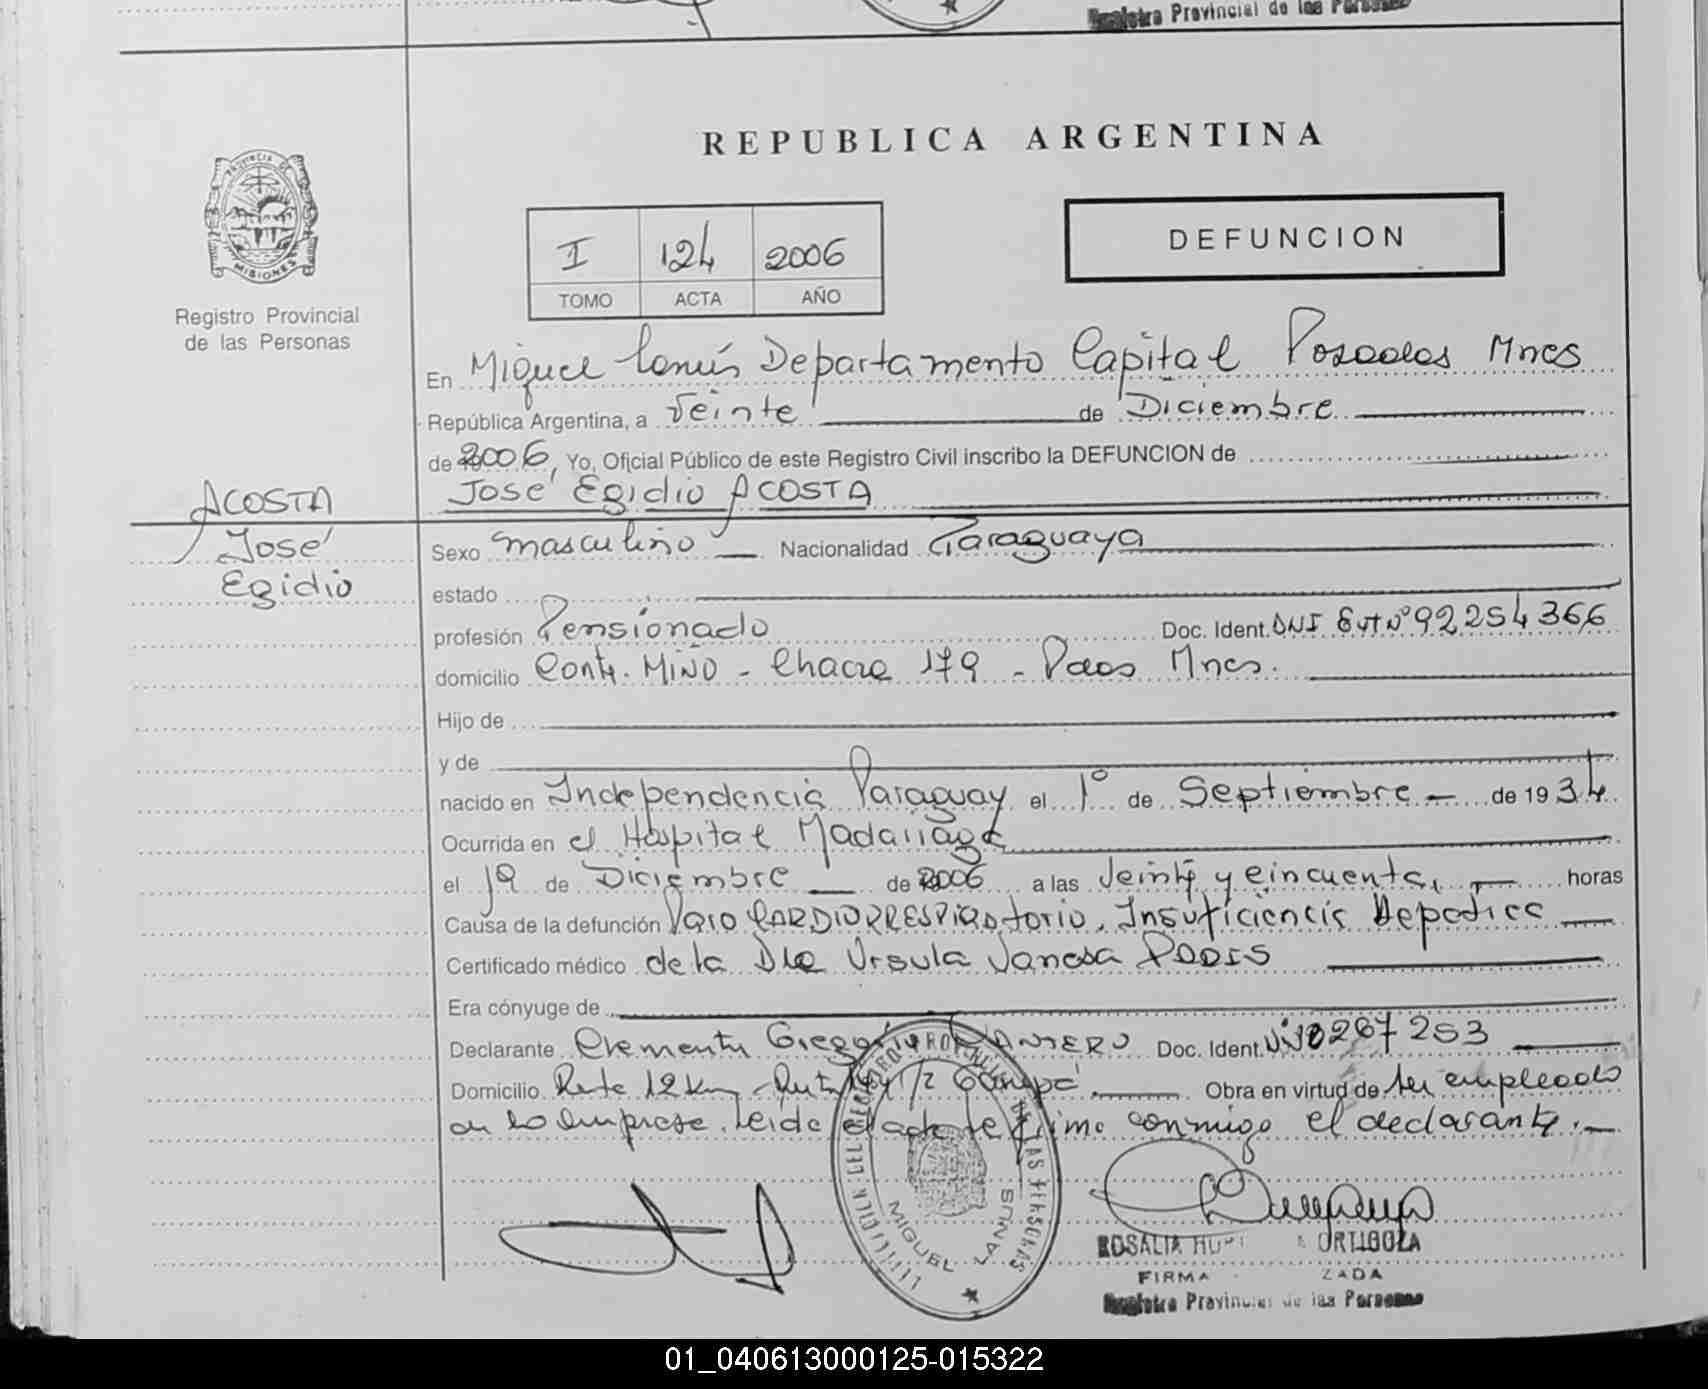 Registro Provincial de las Personas
REPUBLICA ARGENTINA
PROVINCIA DE
MISIONES
Registro Provincial
de las Personas
I 124 2006
TOMO ACTA AÑO
DEFUNCION
En Miguel Lanús Departamento Capital Posadas Mnes
República Argentina, a Veinte de Diciembre
de 2006, Yo, Oficial Público de este Registro Civil inscribo la DEFUNCION de
José Egidio ACOSTA
ACOSTA
José
Egidio
Sexo masculino Nacionalidad Paraguaya
estado
profesión Pensionado Doc. Ident. DNI Ext Nº 92254366
domicilio Contr. MIÑO - Chacra 179 - Pdas Mnes.
Hijo de
y de
nacido en Independencia Paraguay el 1º de Septiembre de 1934
Ocurrida en el Hospital Madariaga
el 19 de Diciembre de 2006 a las Veinte y cincuenta, horas
Causa de la defunción Paro CARDIORRESPIRAtorio, Insuficiencia Hepatica
Certificado médico de la Dra Ursula Vanesa
Era cónyuge de
Declarante Clemente Gregorio Doc. Ident. 267253
Domicilio Ruta 12 Km 1/2 Garupá Obra en virtud de ser empleado
de la empresa. Leida el acta la firma conmigo el declarante.
MIGUEL LANUS
ROSALIA ORTIGOZA
FIRMA ZADA
Registro Provincial de las Personas
01_040613000125-015322